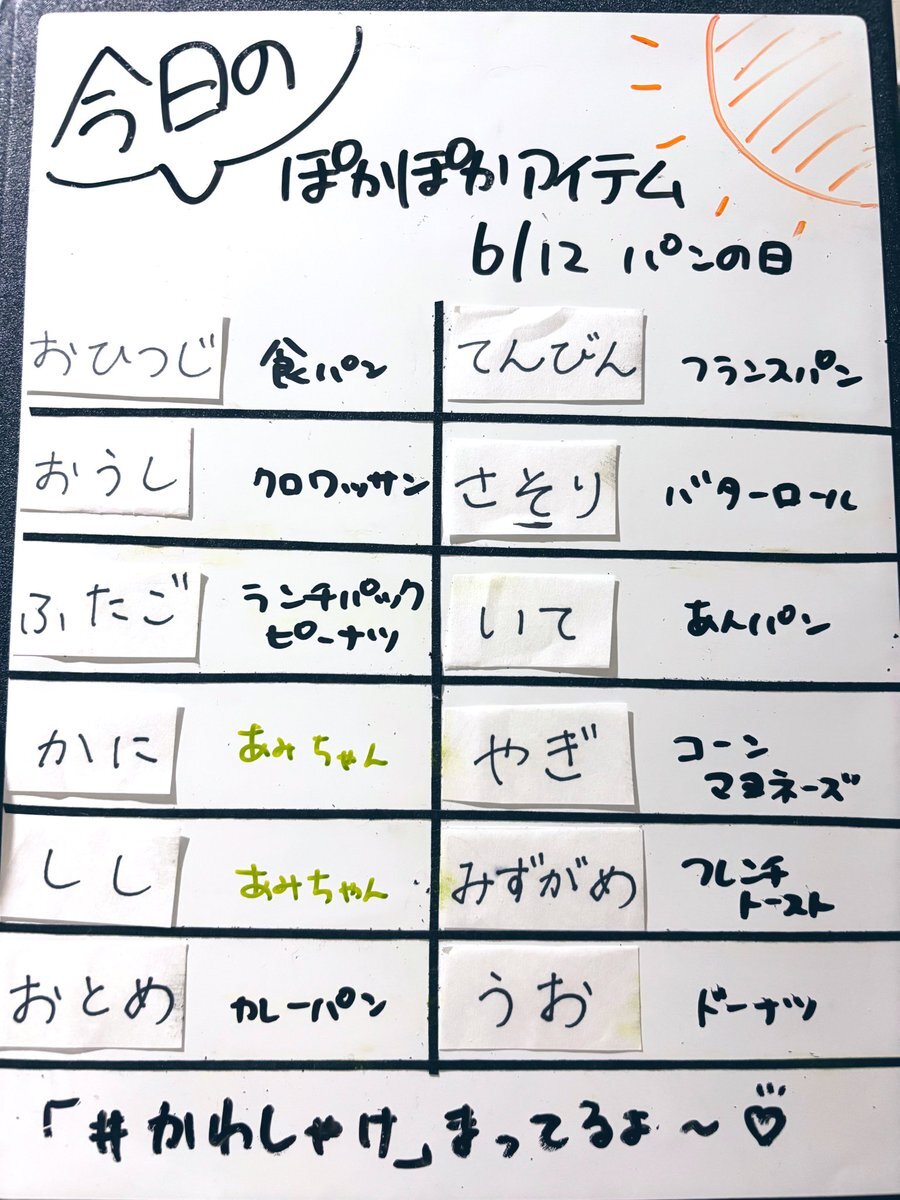 今日の
ぽかぽかアイテム
6/12 パンの日
おひつじ 食パン
てんびん フランスパン
おうし クロワッサン
さそり バターロール
ふたご ランチパック
ピーナツ
いて あんパン
かに あみちゃん
やぎ コーン
マヨネーズ
しし あみちゃん
みずがめ フレンチ
トースト
おとめ カレーパン
うお ドーナツ
「#かわしゃけ」まってるよ〜♡